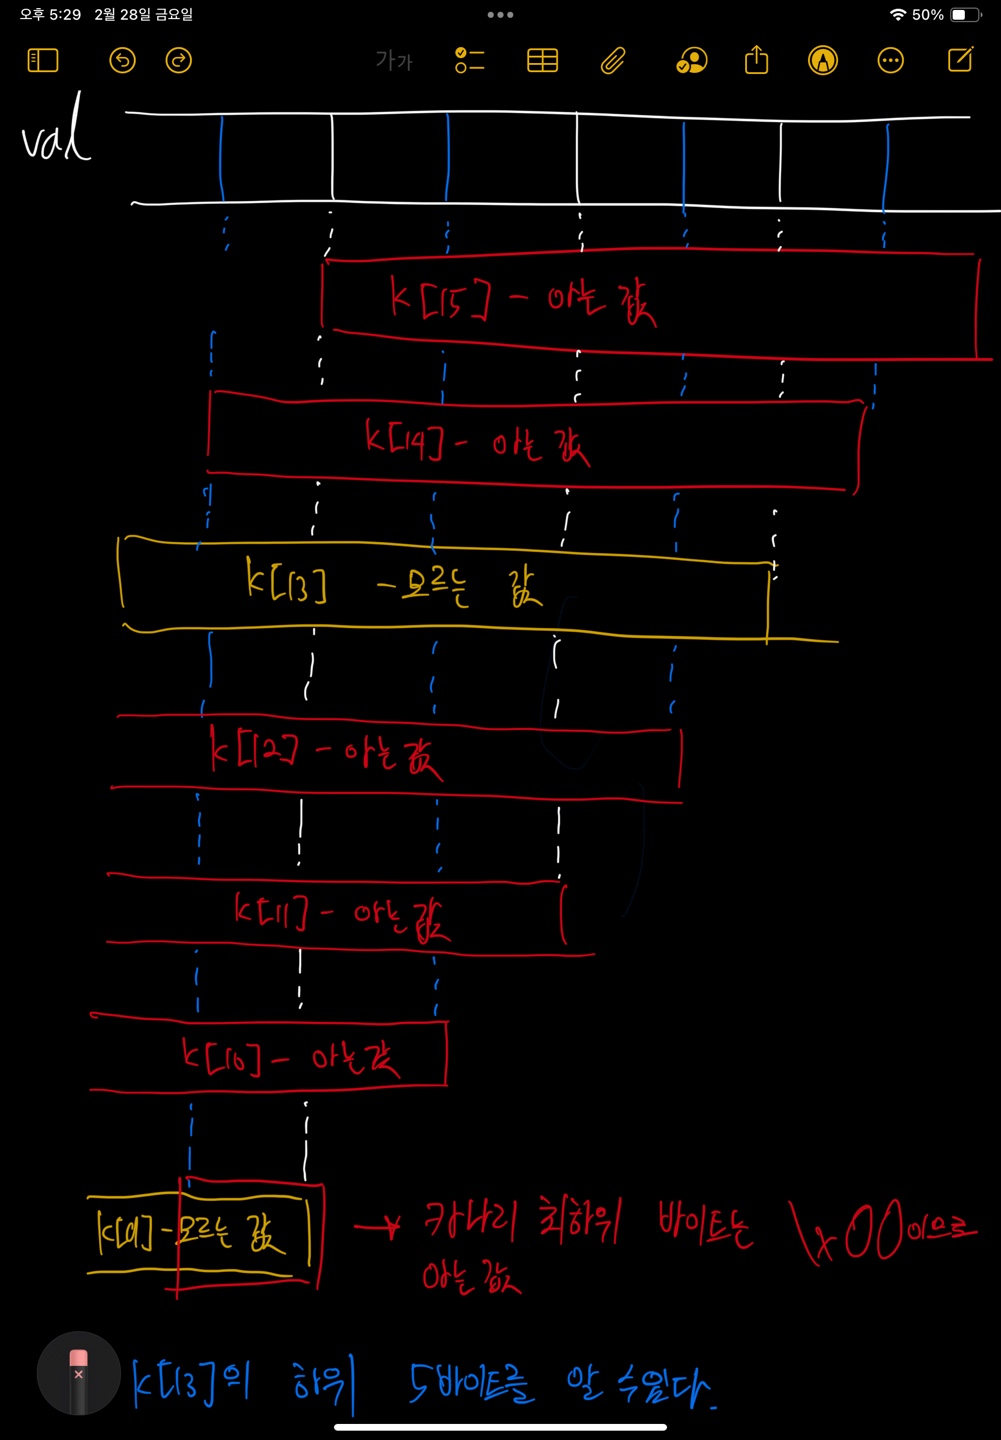 오후 5:29 2월 28일 금요일 50%
가가
val
k[15] - 아는 값
k[14] - 아는 값
k[13] - 모르는 값
k[12] - 아는 값
k[11] - 아는 값
k[10] - 아는 값
k[9] - 모르는 값 → 카나리 최하위 바이트는 \x00이므로
아는 값
k[13]의 하위 5바이트를 알 수 있다.